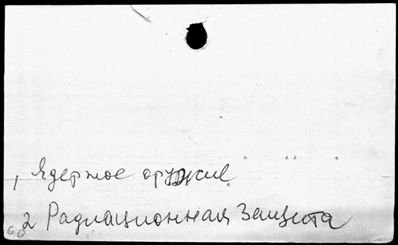 1, Ядерное оружие
2 Радиационная Защита